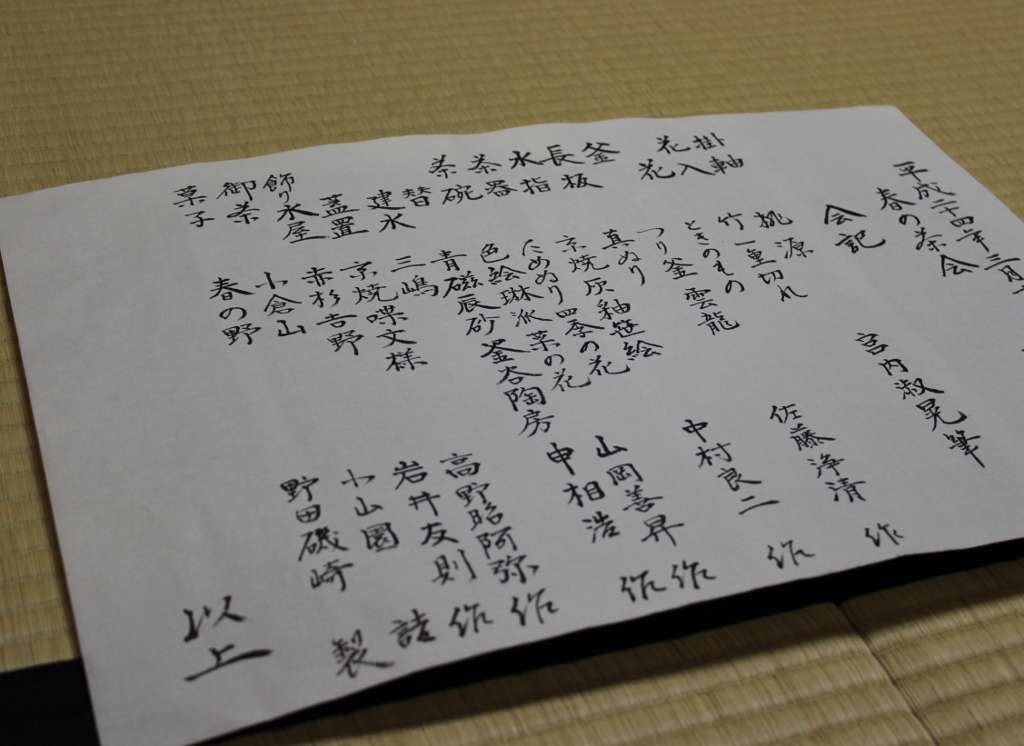 平成二十四年三月
春の茶会
会記
掛軸 桃源 宮内淑晃筆
花入 竹一重切れ
花 ときのもの
釜 つり釜雲龍 佐藤浄清 作
長板 真ぬり
水指 京焼灰釉笹絵 中村良二 作
茶器 ためぬり四季の花 山岡善昇 作
茶碗 色絵琳派菜の花 申相浩 作
替 青磁辰砂 釜谷陶房
建水 三嶋
蓋置 京焼喋文様 高野昭阿弥 作
飾り水屋 赤杉吉野 岩井友則 作
御茶 小倉山 小山園 詰
菓子 春の野 野田磯崎 製
以上